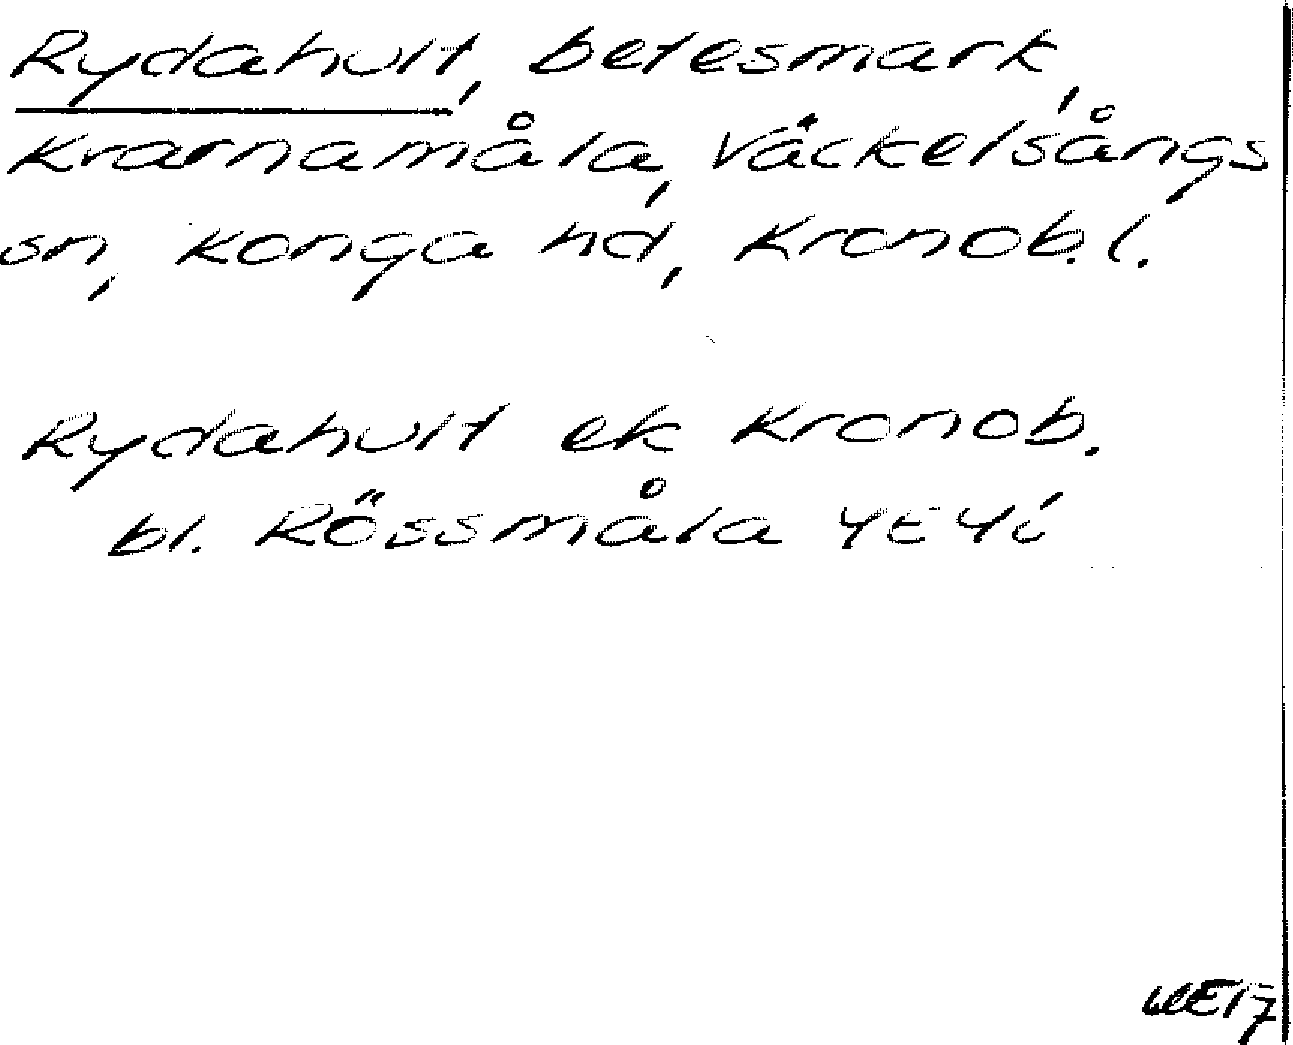 Rydahult, betesmark,
Kvarnamåla, Väckelsångs
sn, Konga hd, Kronob.l.
Rydahult ek Kronob.
bl. Rössmåla 4E4i